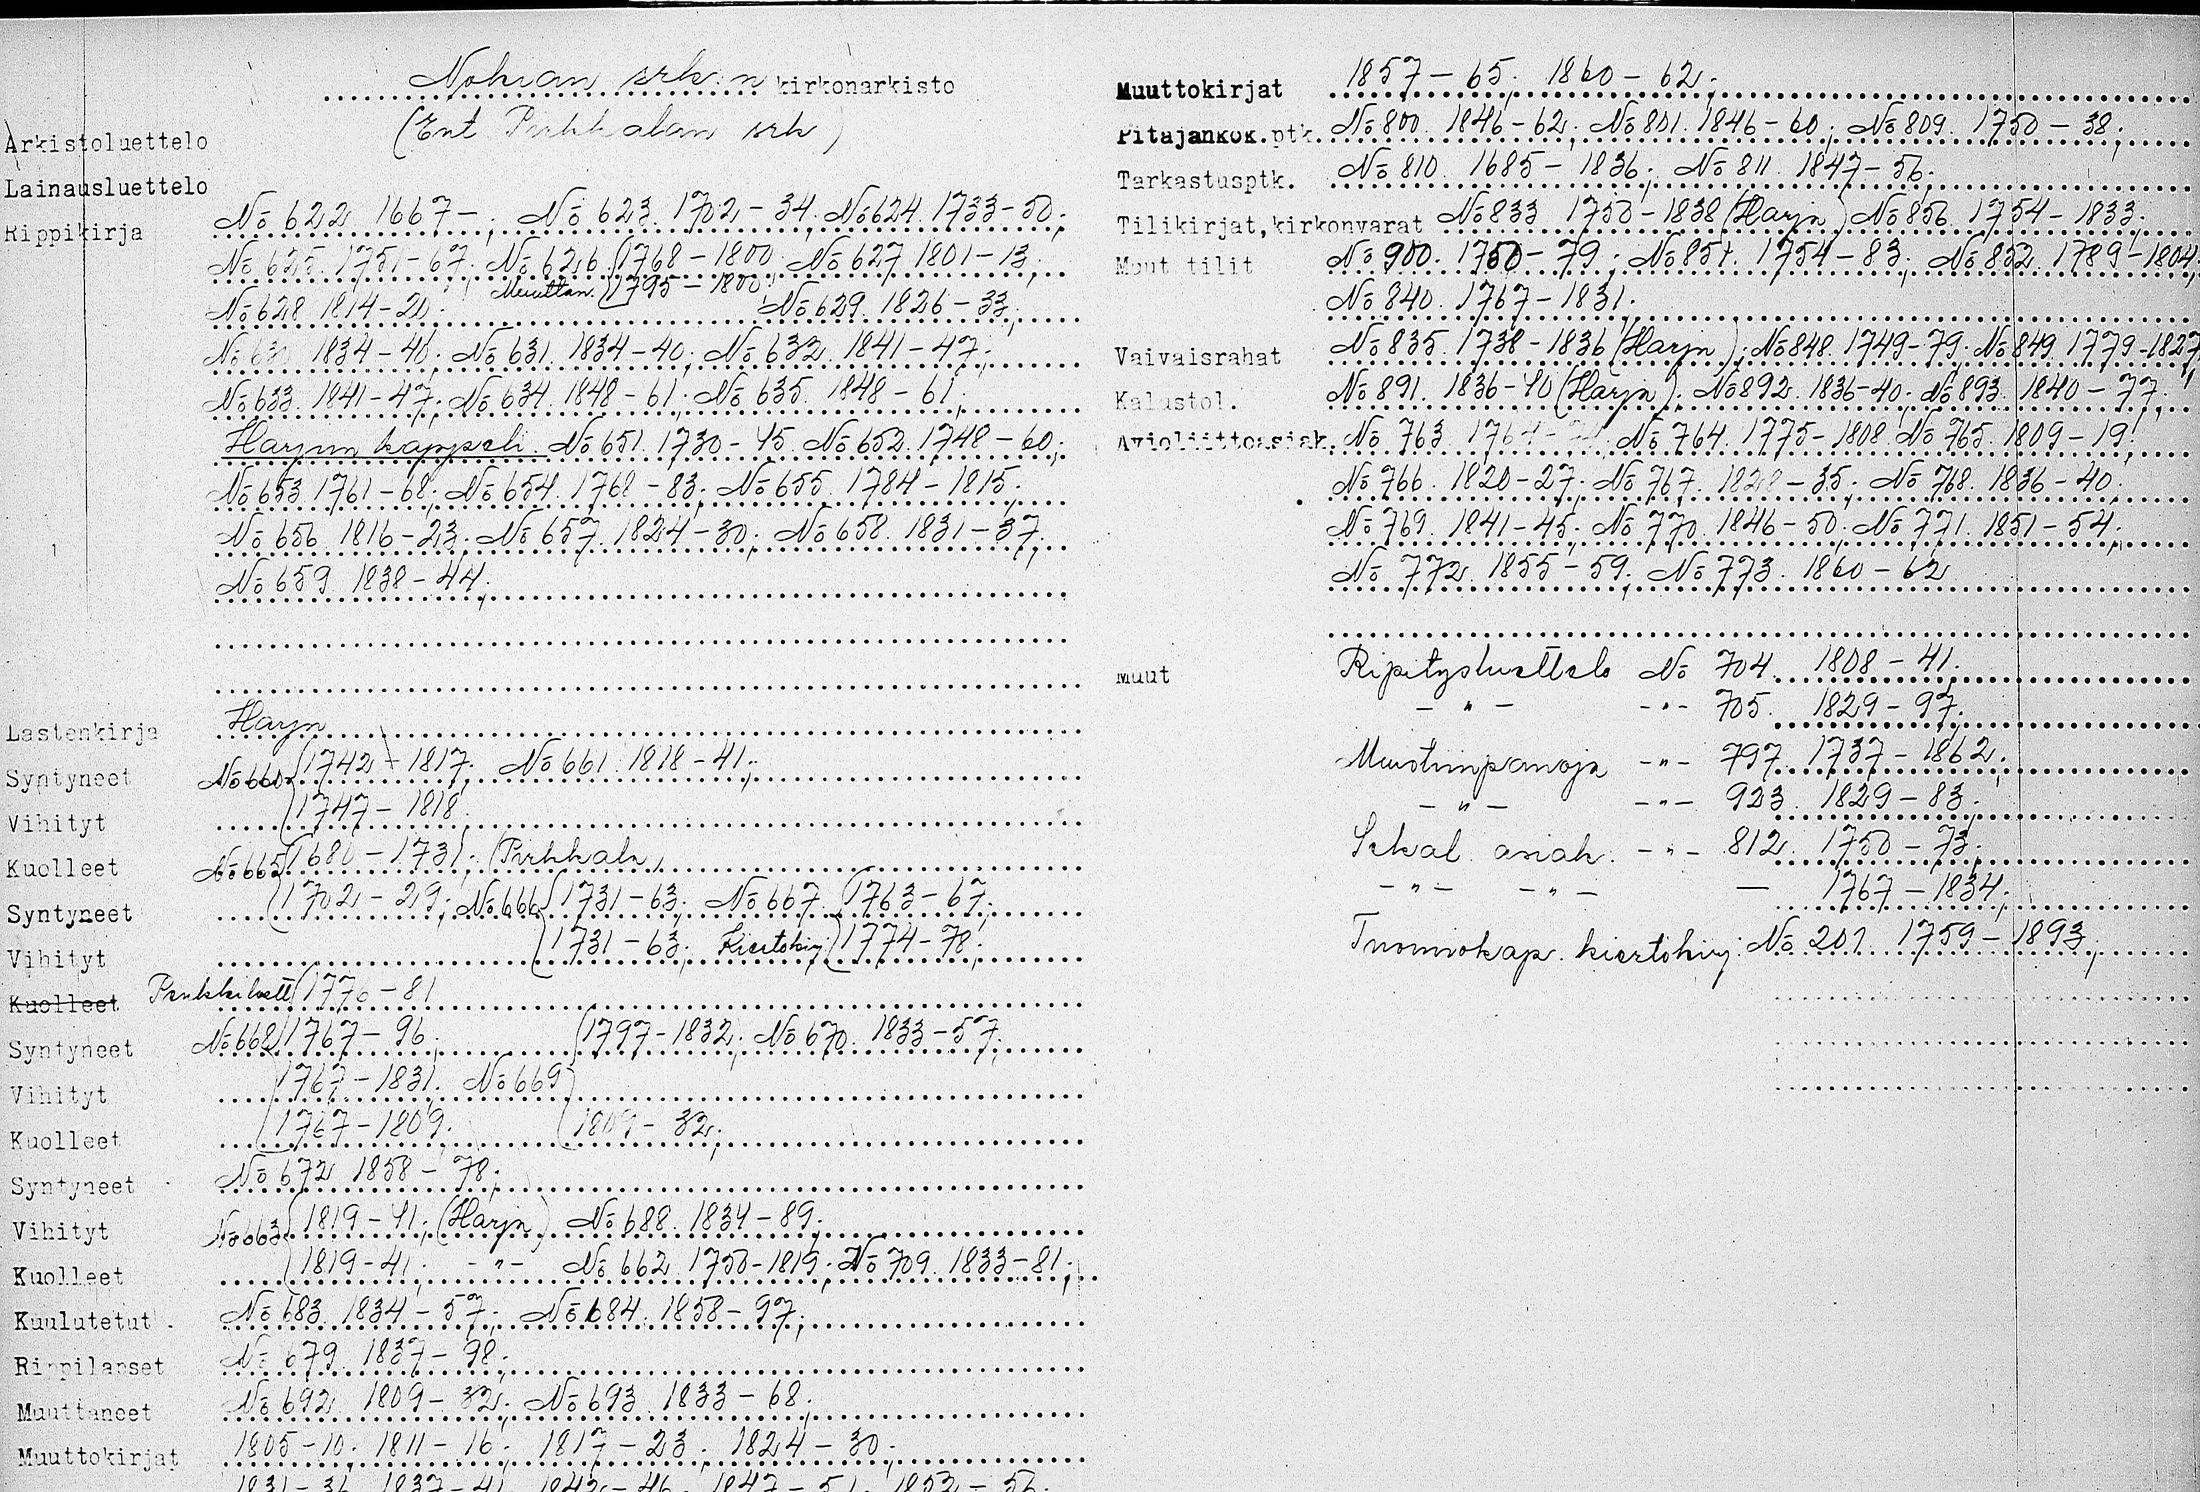 Nokian srk:n kirkonarkisto
(Ent Pirkkalan srk)
Arkistoluettelo
Lainausluettelo
Rippikirja No 622 1667-; No 623. 1702-34; No 624. 1733-50;
No 625. 1751-67; No 626. (1768-1800; No 627 1801-13;
No 628 1814-20; Muuttan. (1795-1800; No 629. 1826-33;
1834-40; No 631. 1834-40; No 632. 1841-47;
No 633. 1841-47; No 634. 1848-61; No 635. 1848-61;
Harjun kappeli. No 651. 1730-45. No 652. 1748-60;
No 653. 1761-68; No 654. 1768-83; No 655. 1784-1815;
No 656. 1816-23; No 657. 1824-30; No 658. 1831-37;
No 659. 1838-44;
Lastenkirja Harjn
Syntyneet No 660 (1742-1817; No 661. 1818-41;
Vihityt (1747-1818.
Kuolleet No 665 (1680-1731; (Pirkkala)
Syntyneet (1702-29; No 666 (1731-63; No 667. (1763-67;
Vihityt (1731-63; Kiertokirj. (1774-78;
Kuolleet Penkkiluett (1776-81
Syntyneet No 668 (1767-96; (1797-1832; No 670. 1833-57;
Vihityt (1767-1831. No 669
Kuolleet (1767-1809. (1809-32;
Syntyneet No 672 1858-78;
Vihityt No 663 (1819-41; (Harjn) No 688. 1834-89;
Kuolleet (1819-41; -"- No 662. 1750-1819; No 709. 1833-81;
Kuulutetut. No 683. 1834-57; No 684. 1858-97;
Rippilapset No 679. 1837-98;
Muuttaneet No 692. 1809-32; No 693. 1833-68;
Muuttokirjat 1805-10; 1811-16; 1817-23; 1824-30;
1831-36. 1837-41. 1842-46. 1847-51. 1852-56.
Muuttokirjat 1857-65; 1860-62;
Pitäjänkok.ptk. No 800. 1846-62; No 801. 1846-60; No 809. 1750-38;
Tarkastusptk. No 810. 1685-1836; No 811. 1847-56;
Tilikirjat,kirkonvarat No 833. 1750-1838 (Harjn) No 856. 1754-1833;
Muut tilit No 900. 1750-79; No 851. 1754-83; No 852. 1789-1804;
No 840. 1767-1831.
Vaivaisrahat No 835. 1738-1836 (Harjn); No 848. 1749-79; No 849. 1779-1827
Kalustol. No 891. 1836-40 (Harjn); No 892. 1836-40; No 893. 1840-77;
Avioliittoasiak. No 763. No 764. 1775-1808 No 765. 1809-19;
No 766. 1820-27; No 767. 1828-35; No 768. 1836-40;
No 769. 1841-45; No 770. 1846-50; No 771. 1851-54;
No 772. 1855-59; No 773. 1860-62
Muut Ripitysluettelo No 704. 1808-41.
-"- -"- 705. 1829-97.
Muistiinpanoja -"- 797. 1737-1862;
-"- -"- 923. 1829-83.
Sekal. asiak. -"- 812. 1750-73;
-"- -"- - 1767-1834;
Tuomiokap. kiertokirj. No 201. 1759-1893;